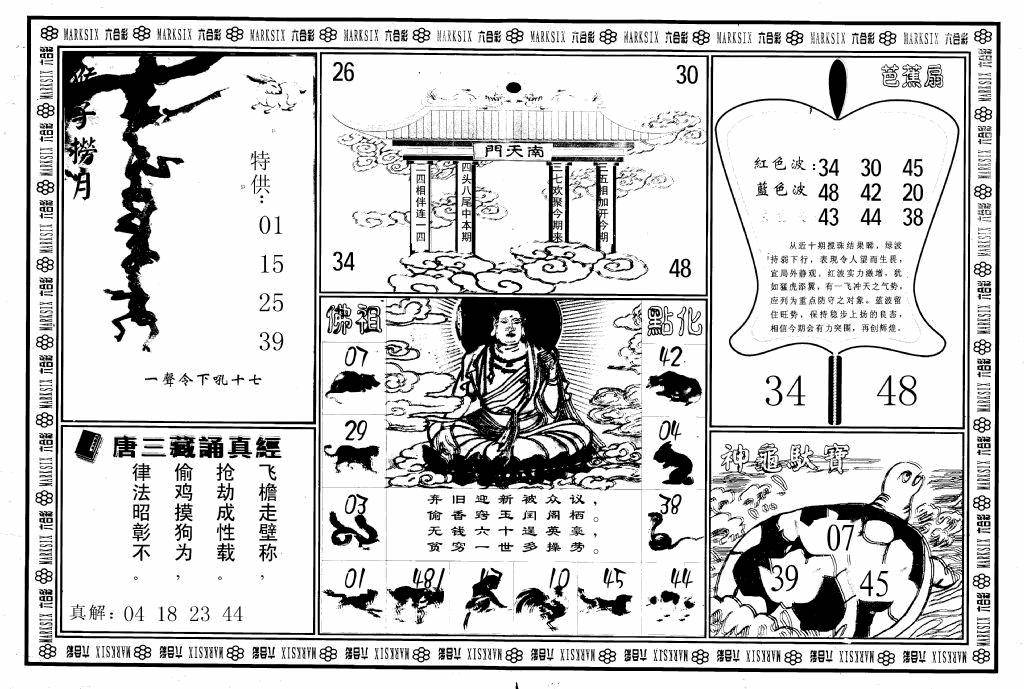 MARKSIX 六合彩 MARKSIX 六合彩 MARKSIX 六合彩 MARKSIX 六合彩 MARKSIX 六合彩 MARKSIX 六合彩 MARKSIX 六合彩 MARKSIX 六合彩 MARKSIX 六合彩 MARKSIX 六合彩
猴子捞月
特供：
01
15
25
39
一聲令下吼十七
26
30
南天門
一四相伴连一四
四头八尾中本期
三七欢聚今期来
二五相加开今期
34
48
芭蕉扇
紅色波：34 30 45
藍色波 48 42 20
43 44 38
从近十期搅珠结果睇，绿波
持弱下行，表现令人望而生畏，
宜局外静观。红波实力激增，犹
如猛虎添翼，有一飞冲天之气势，
应列为重点防守之对象。蓝波留
住旺势，保持稳步上扬的良态，
相信今期会有力突围，再创辉煌。
34 48
佛祖
點化
07
29
03
42
04
38
弃旧迎新被众议，
偷香窍玉闰阁栖。
无钱六十逞英豪，
贫穷一世多操劳。
01
10
45
44
唐三藏誦真經
飞檐走壁称，
抢劫成性载。
偷鸡摸狗为，
律法昭彰不。
真解：04 18 23 44
神龜馱寶
07
39
45